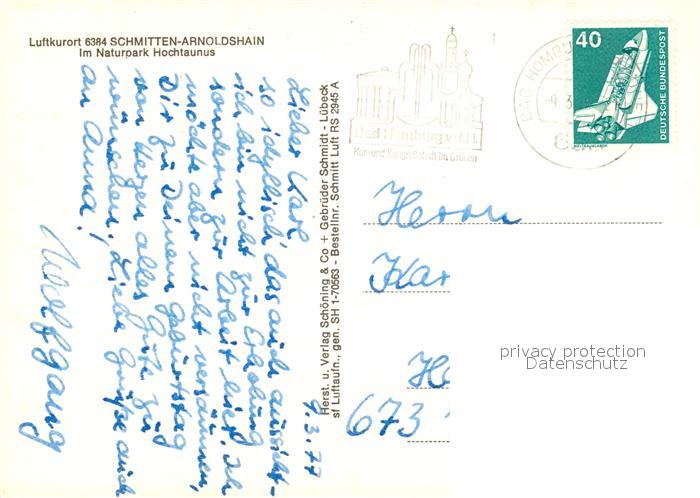 Luftkurort 6384 SCHMITTEN-ARNOLDSHAIN
Im Naturpark Hochtaunus
9.3.77
Lieber Karl
so idyllisch das auch aussieht -
ich bin nicht zur Erholung
sondern zur Arbeit hier. Ich
möchte aber nicht versäumen,
Dir zu Deinem Geburtstag
von Herzen alles Gute zu
wünschen. Liebe Grüße auch
an Anna!
Wolfgang
Herst. u. Verlag Schöning & Co + Gebrüder Schmidt - Lübeck
sf Luftaufn., gen. SH 1-70563 - Bestellnr. Schmitt Luft RS 2945 A
Bad Homburg v.d.H.
Kur- und Kongreßstadt im Grünen
BAD HOMBU
40
DEUTSCHE BUNDESPOST
WELTRAUMLABOR
Herrn
Kar
He
673
privacy protection
Datenschutz